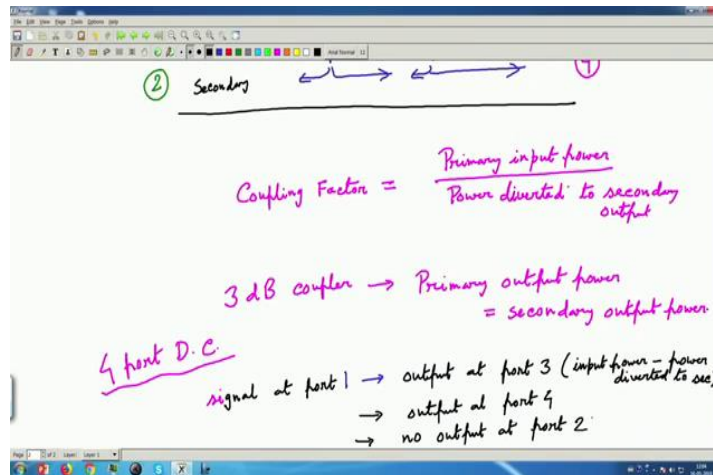 File Edit View Page Tools Options Help
Arial Normal 12
2 Secondary 4
Primary input power
Coupling Factor =
Power diverted to secondary
output
3 dB coupler → Primary output power
= secondary output power.
4 port D.C.
signal at port 1 → output at port 3 (input power - power
diverted to sec)
→ output at port 4
→ no output at port 2
Layer: Layer 1